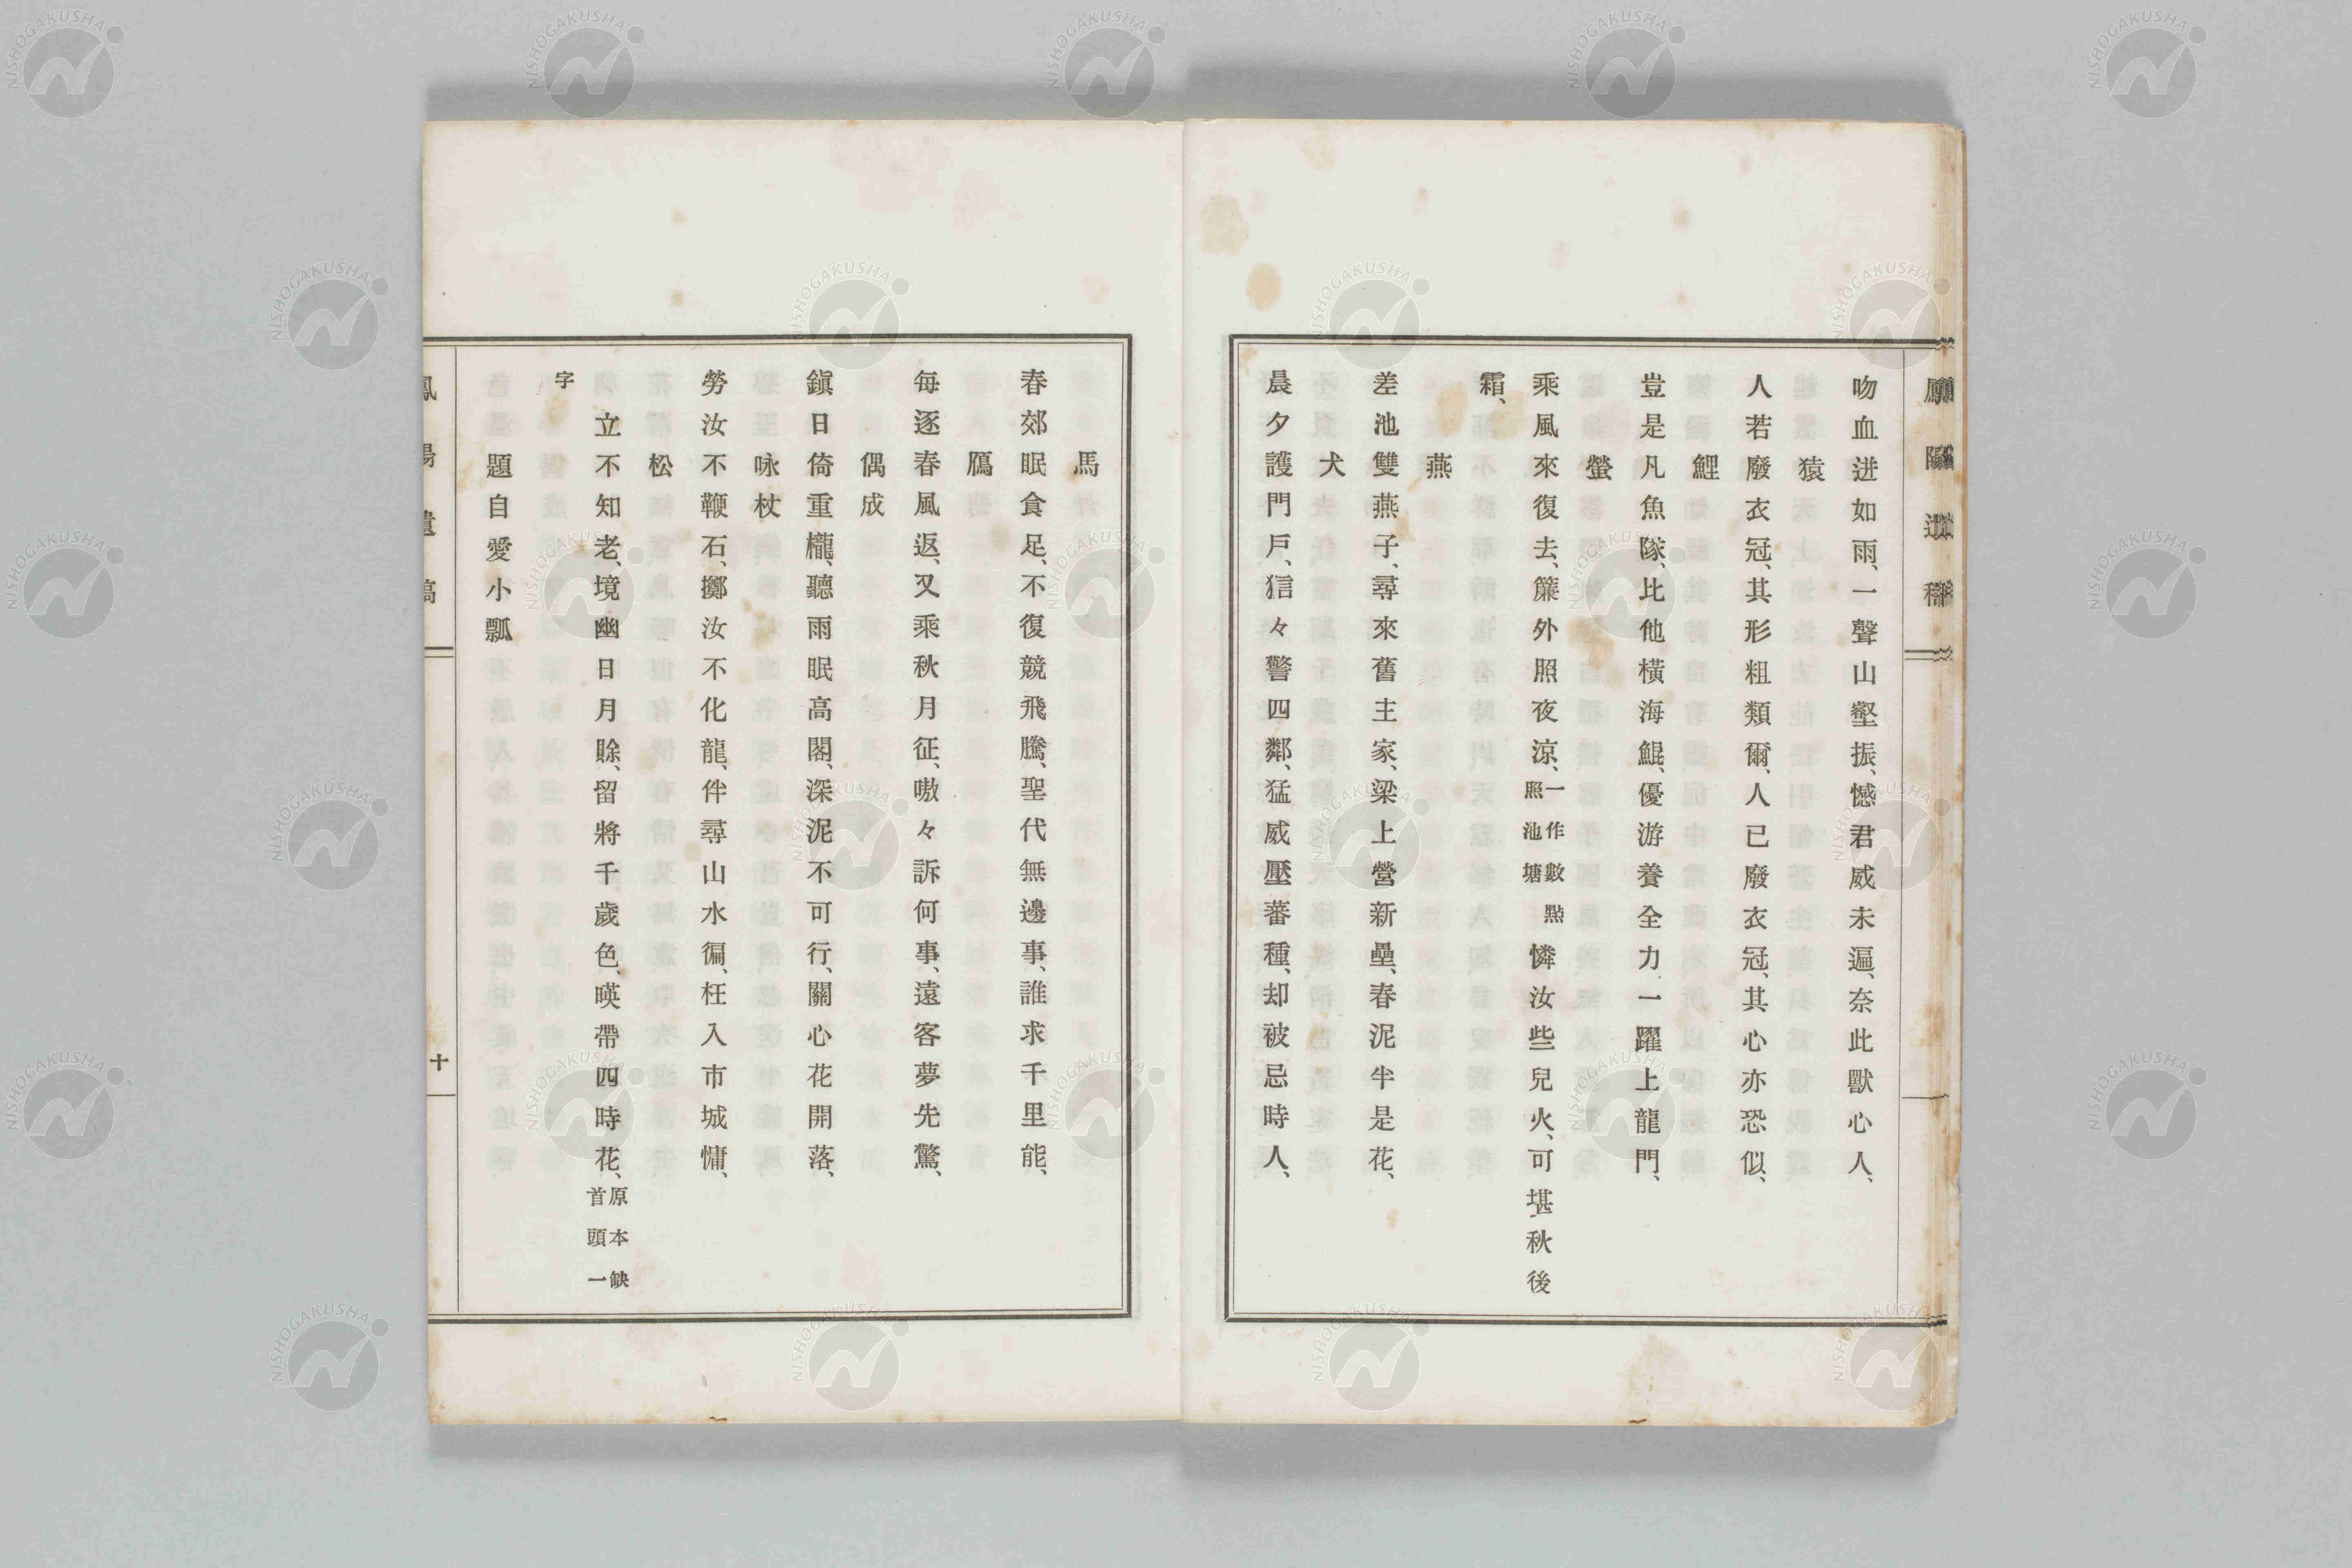 吻血迸如雨、一聲山壑振、憾君威未遍、奈此獸心人、
猿
人若廢衣冠、其形粗類爾、人已廢衣冠、其心亦恐似、
鯉
豈是凡魚隊、比他横海鯤、優游養全力、一躍上龍門、
螢
乘風來復去、簾外照夜涼、一作數點照池塘憐汝些兒火、可堪秋後
霜、
燕
差池雙燕子、尋來舊主家、梁上營新壘、春泥半是花、
犬
晨夕護門戶、狺々警四鄰、猛威壓蕃種、却被忌時人、
馬
春郊眠食足、不復競飛騰、聖代無邊事、誰求千里能、
鴈
每逐春風返、又乘秋月征、嗷々訴何事、遠客夢先驚、
偶成
鎭日倚重櫳、聽雨眠高閣、深泥不可行、關心花開落、
咏杖
勞汝不鞭石、擲汝不化龍、伴尋山水徧、枉入市城慵、
松
立不知老、境幽日月賖、留將千歲色、暎帶四時花、原本缺首頭一
字
題自愛小瓢
鳳陽遺稿
十
NISHOGAKUSHA